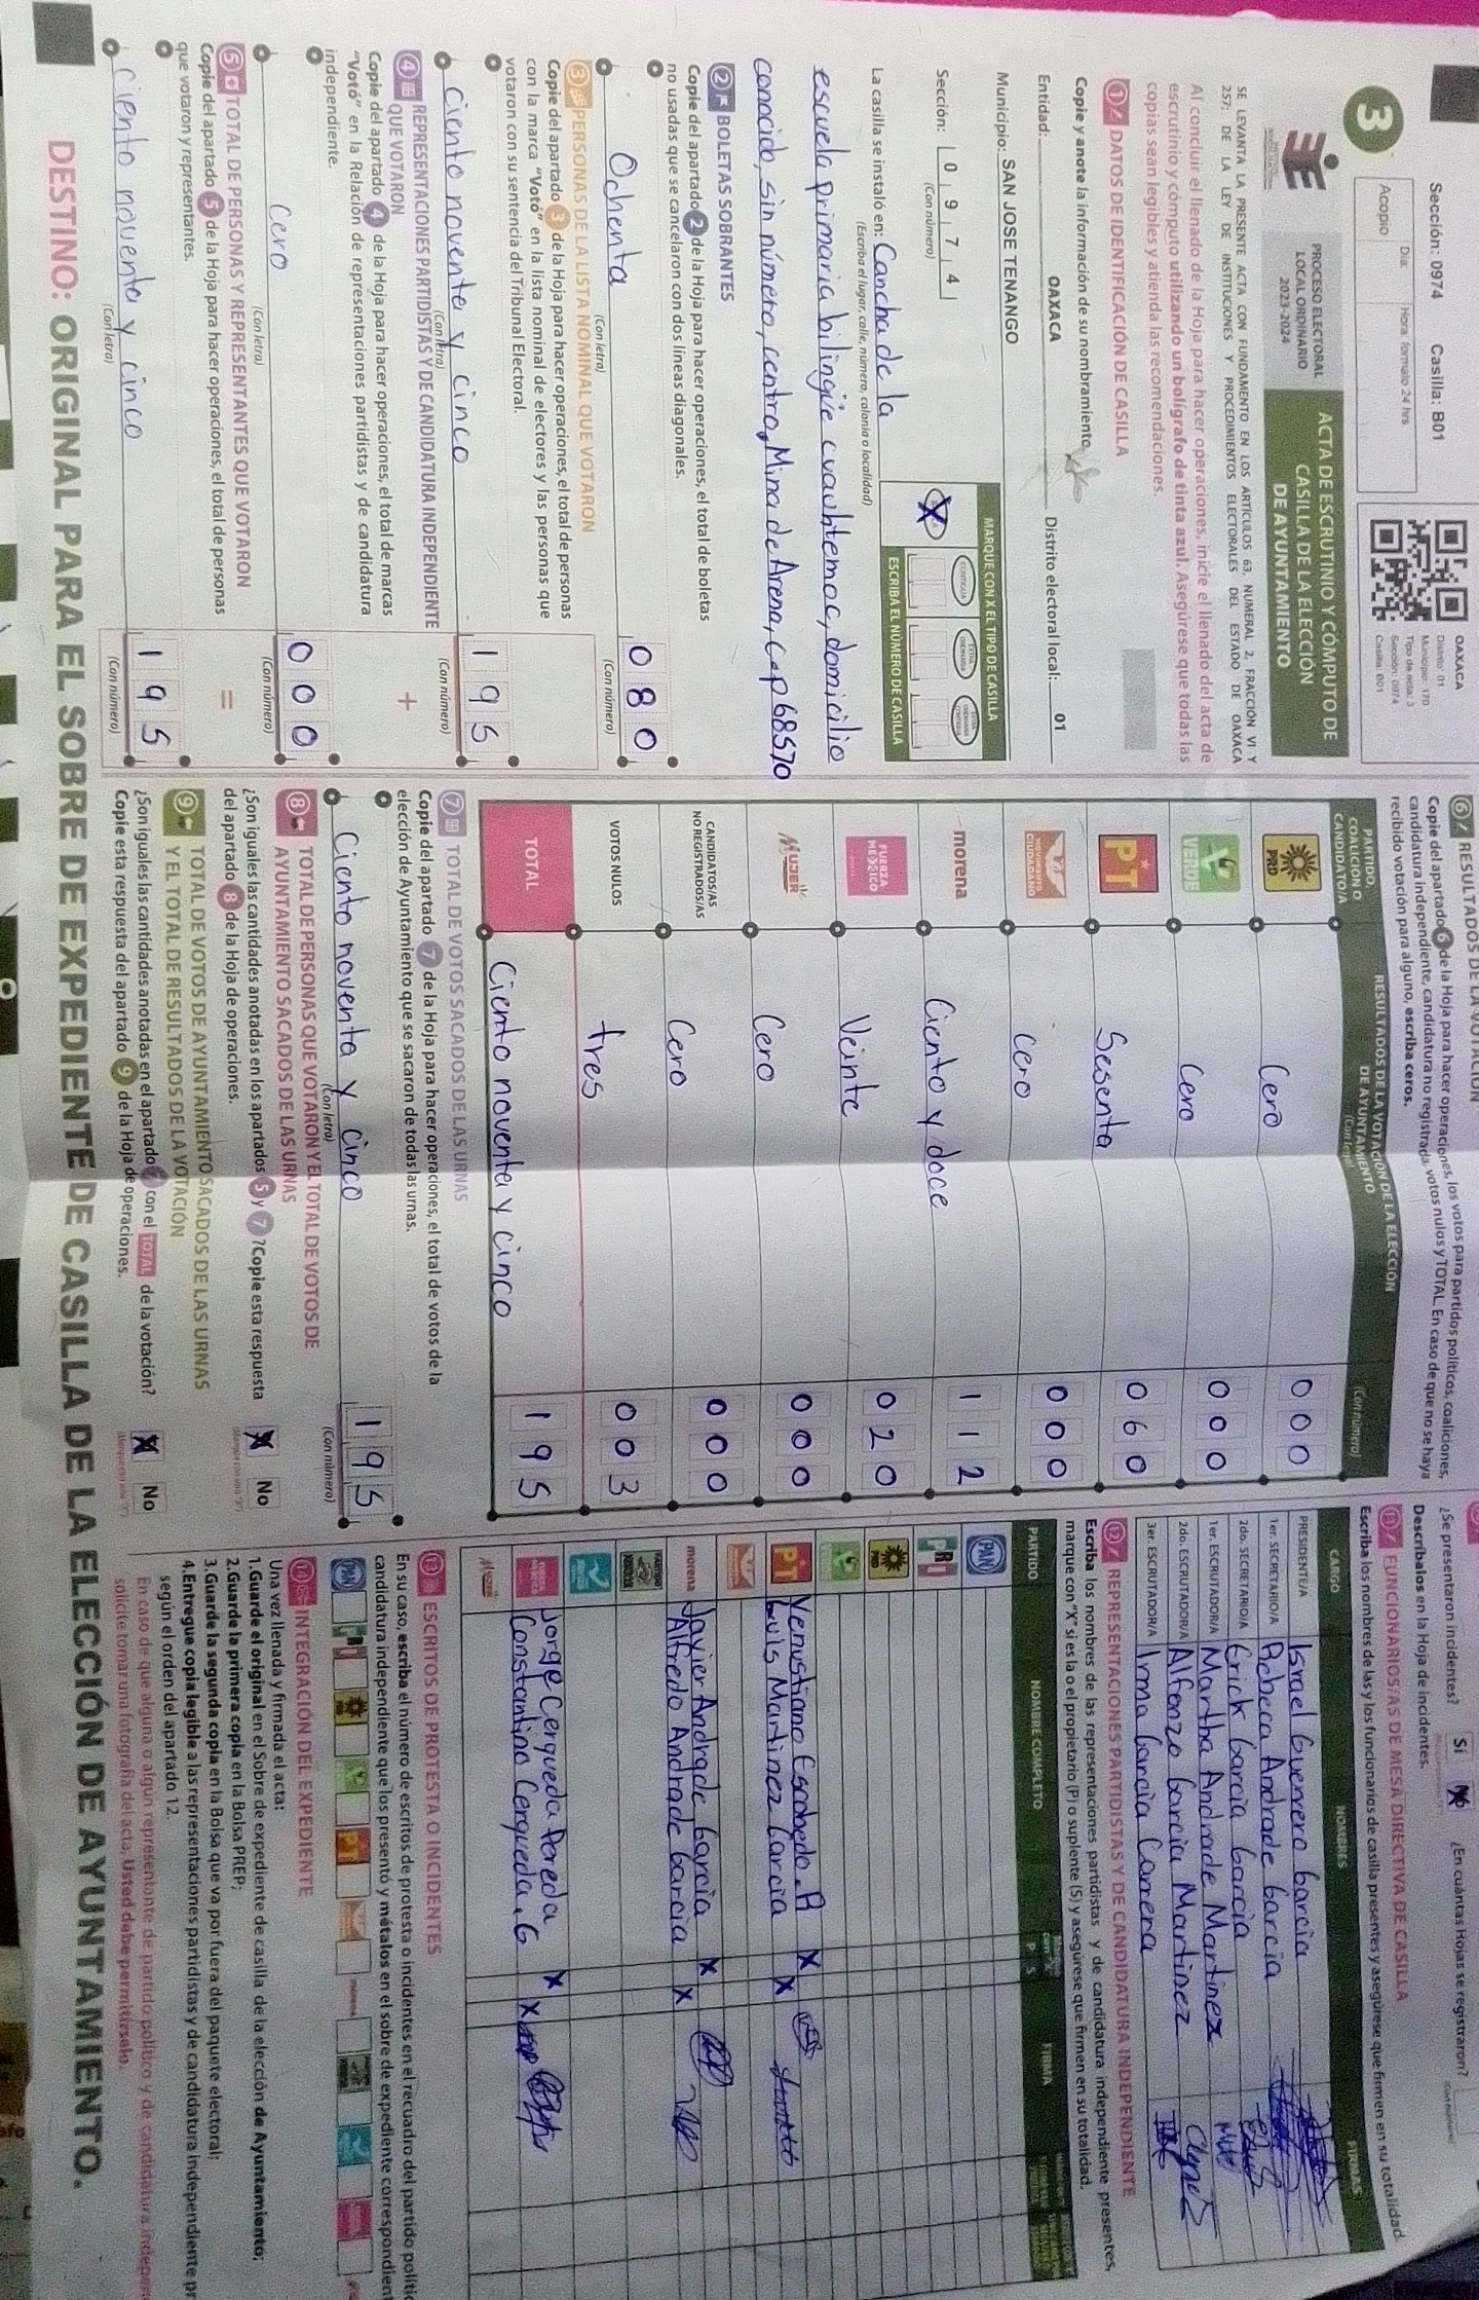 Sección: 0974 Casilla: B01
Día: Hora formato 24 hrs
Acopio
3
OAXACA
Distrito: 01
Municipio: 170
Tipo de acta: 3
Sección: 0974
Casilla: B01
PROCESO ELECTORAL
LOCAL ORDINARIO
2023-2024
ACTA DE ESCRUTINIO Y CÓMPUTO DE
CASILLA DE LA ELECCIÓN
DE AYUNTAMIENTO
SE LEVANTA LA PRESENTE ACTA CON FUNDAMENTO EN LOS ARTÍCULOS 63, NUMERAL 2, FRACCIÓN VI Y
257; DE LA LEY DE INSTITUCIONES Y PROCEDIMIENTOS ELECTORALES DEL ESTADO DE OAXACA
Al concluir el llenado de la Hoja para hacer operaciones, inicie el llenado del acta de
escrutinio y cómputo utilizando un bolígrafo de tinta azul. Asegúrese que todas las
copias sean legibles y atienda las recomendaciones.
1 DATOS DE IDENTIFICACIÓN DE CASILLA
Copie y anote la información de su nombramiento
Entidad: OAXACA Distrito electoral local: 01
Municipio: SAN JOSE TENANGO
Sección: 0 9 7 4
(Con número)
MARQUE CON X EL TIPO DE CASILLA
X
ESCRIBA EL NÚMERO DE CASILLA
La casilla se instaló en: Cancha de la
(Escriba el lugar, calle, número, colonia o localidad)
escuela primaria bilingüe cuauhtemoc, domicilio
conocido, sin número, centro, Mina de Arena, C.p 68570
2 BOLETAS SOBRANTES
Copie del apartado 2 de la Hoja para hacer operaciones, el total de boletas
no usadas que se cancelaron con dos líneas diagonales.
Ochenta 0 8 0
(Con letra) (Con número)
3 PERSONAS DE LA LISTA NOMINAL QUE VOTARON
Copie del apartado 3 de la Hoja para hacer operaciones, el total de personas
con la marca "Votó" en la lista nominal de electores y las personas que
votaron con su sentencia del Tribunal Electoral.
Ciento noventa y cinco 1 9 5
(Con letra) (Con número)
4 REPRESENTACIONES PARTIDISTAS Y DE CANDIDATURA INDEPENDIENTE
QUE VOTARON +
Copie del apartado 4 de la Hoja para hacer operaciones, el total de marcas
"Votó" en la Relación de representaciones partidistas y de candidatura
independiente.
Cero 0 0 0
(Con letra) (Con número)
5 TOTAL DE PERSONAS Y REPRESENTANTES QUE VOTARON =
Copie del apartado 5 de la Hoja para hacer operaciones, el total de personas
que votaron y representantes.
Ciento noventa y cinco 1 9 5
(Con letra) (Con número)
6 RESULTADOS DE LA VOTACIÓN
Copie del apartado 6 de la Hoja para hacer operaciones, los votos para partidos políticos, coaliciones,
candidatura independiente, candidatura no registrada, votos nulos y TOTAL. En caso de que no se haya
recibido votación para alguno, escriba ceros.
PARTIDO,
COALICIÓN O
CANDIDATO/A
RESULTADOS DE LA VOTACIÓN DE LA ELECCIÓN
DE AYUNTAMIENTO
(Con letra) (Con número)
PRD Cero 0 0 0
VERDE Cero 0 0 0
PT Sesenta 0 6 0
MOVIMIENTO CIUDADANO Cero 0 0 0
morena Ciento y doce 1 1 2
FUERZA MÉXICO Veinte 0 2 0
MUJER Cero 0 0 0
CANDIDATOS/AS
NO REGISTRADOS/AS Cero 0 0 0
VOTOS NULOS tres 0 0 3
TOTAL Ciento noventa y cinco 1 9 5
7 TOTAL DE VOTOS SACADOS DE LAS URNAS
Copie del apartado 7 de la Hoja para hacer operaciones, el total de votos de la
elección de Ayuntamiento que se sacaron de todas las urnas.
Ciento noventa y cinco 1 9 5
(Con letra) (Con número)
8 TOTAL DE PERSONAS QUE VOTARON Y EL TOTAL DE VOTOS DE
AYUNTAMIENTO SACADOS DE LAS URNAS
¿Son iguales las cantidades anotadas en los apartados 5 y 7? Copie esta respuesta
del apartado 8 de la Hoja de operaciones.
X No
9 TOTAL DE VOTOS DE AYUNTAMIENTO SACADOS DE LAS URNAS
Y EL TOTAL DE RESULTADOS DE LA VOTACIÓN
¿Son iguales las cantidades anotadas en el apartado 7 con el TOTAL de la votación?
Copie esta respuesta del apartado 9 de la Hoja de operaciones.
X No
¿Se presentaron incidentes? Sí No ¿En cuántas Hojas se registraron?
Descríbalos en la Hoja de incidentes.
11 FUNCIONARIOS/AS DE MESA DIRECTIVA DE CASILLA
Escriba los nombres de las y los funcionarios de casilla presentes y asegúrese que firmen en su totalidad.
CARGO NOMBRES FIRMAS
PRESIDENTE/A Israel Guerrero García
1er. SECRETARIO/A Rebeca Andrade García
2do. SECRETARIO/A Erick García García
1er. ESCRUTADOR/A Martha Andrade Martínez
2do. ESCRUTADOR/A Alfonzo García Martinez
3er. ESCRUTADOR/A Irma García Carrera
12 REPRESENTACIONES PARTIDISTAS Y DE CANDIDATURA INDEPENDIENTE
Escriba los nombres de las representaciones partidistas y de candidatura independiente presentes,
marque con "X" si es la o el propietario (P) o suplente (S) y asegúrese que firmen en su totalidad.
PARTIDO NOMBRE COMPLETO P S FIRMA
PAN
PRI
PRD
VERDE
PT Venustiano Escobedo. A X
Luis Martinez García X
morena Javier Andrade García X
Alfredo Andrade García X
Jorge Cerqueda Pereda X
Constantino Cerqueda. G X
MUJER
13 ESCRITOS DE PROTESTA O INCIDENTES
En su caso, escriba el número de escritos de protesta o incidentes en el recuadro del partido políti
candidatura independiente que los presentó y métalos en el sobre de expediente correspondient
14 INTEGRACIÓN DEL EXPEDIENTE
Una vez llenada y firmada el acta:
1.Guarde el original en el Sobre de expediente de casilla de la elección de Ayuntamiento;
2.Guarde la primera copia en la Bolsa PREP;
3.Guarde la segunda copia en la Bolsa que va por fuera del paquete electoral;
4.Entregue copia legible a las representaciones partidistas y de candidatura independiente pr
según el orden del apartado 12.
En caso de que alguna o algún representante de partido político y de candidatura indepen
solicite tomar una fotografía del acta, Usted debe permitírselo.
DESTINO: ORIGINAL PARA EL SOBRE DE EXPEDIENTE DE CASILLA DE LA ELECCIÓN DE AYUNTAMIENTO.